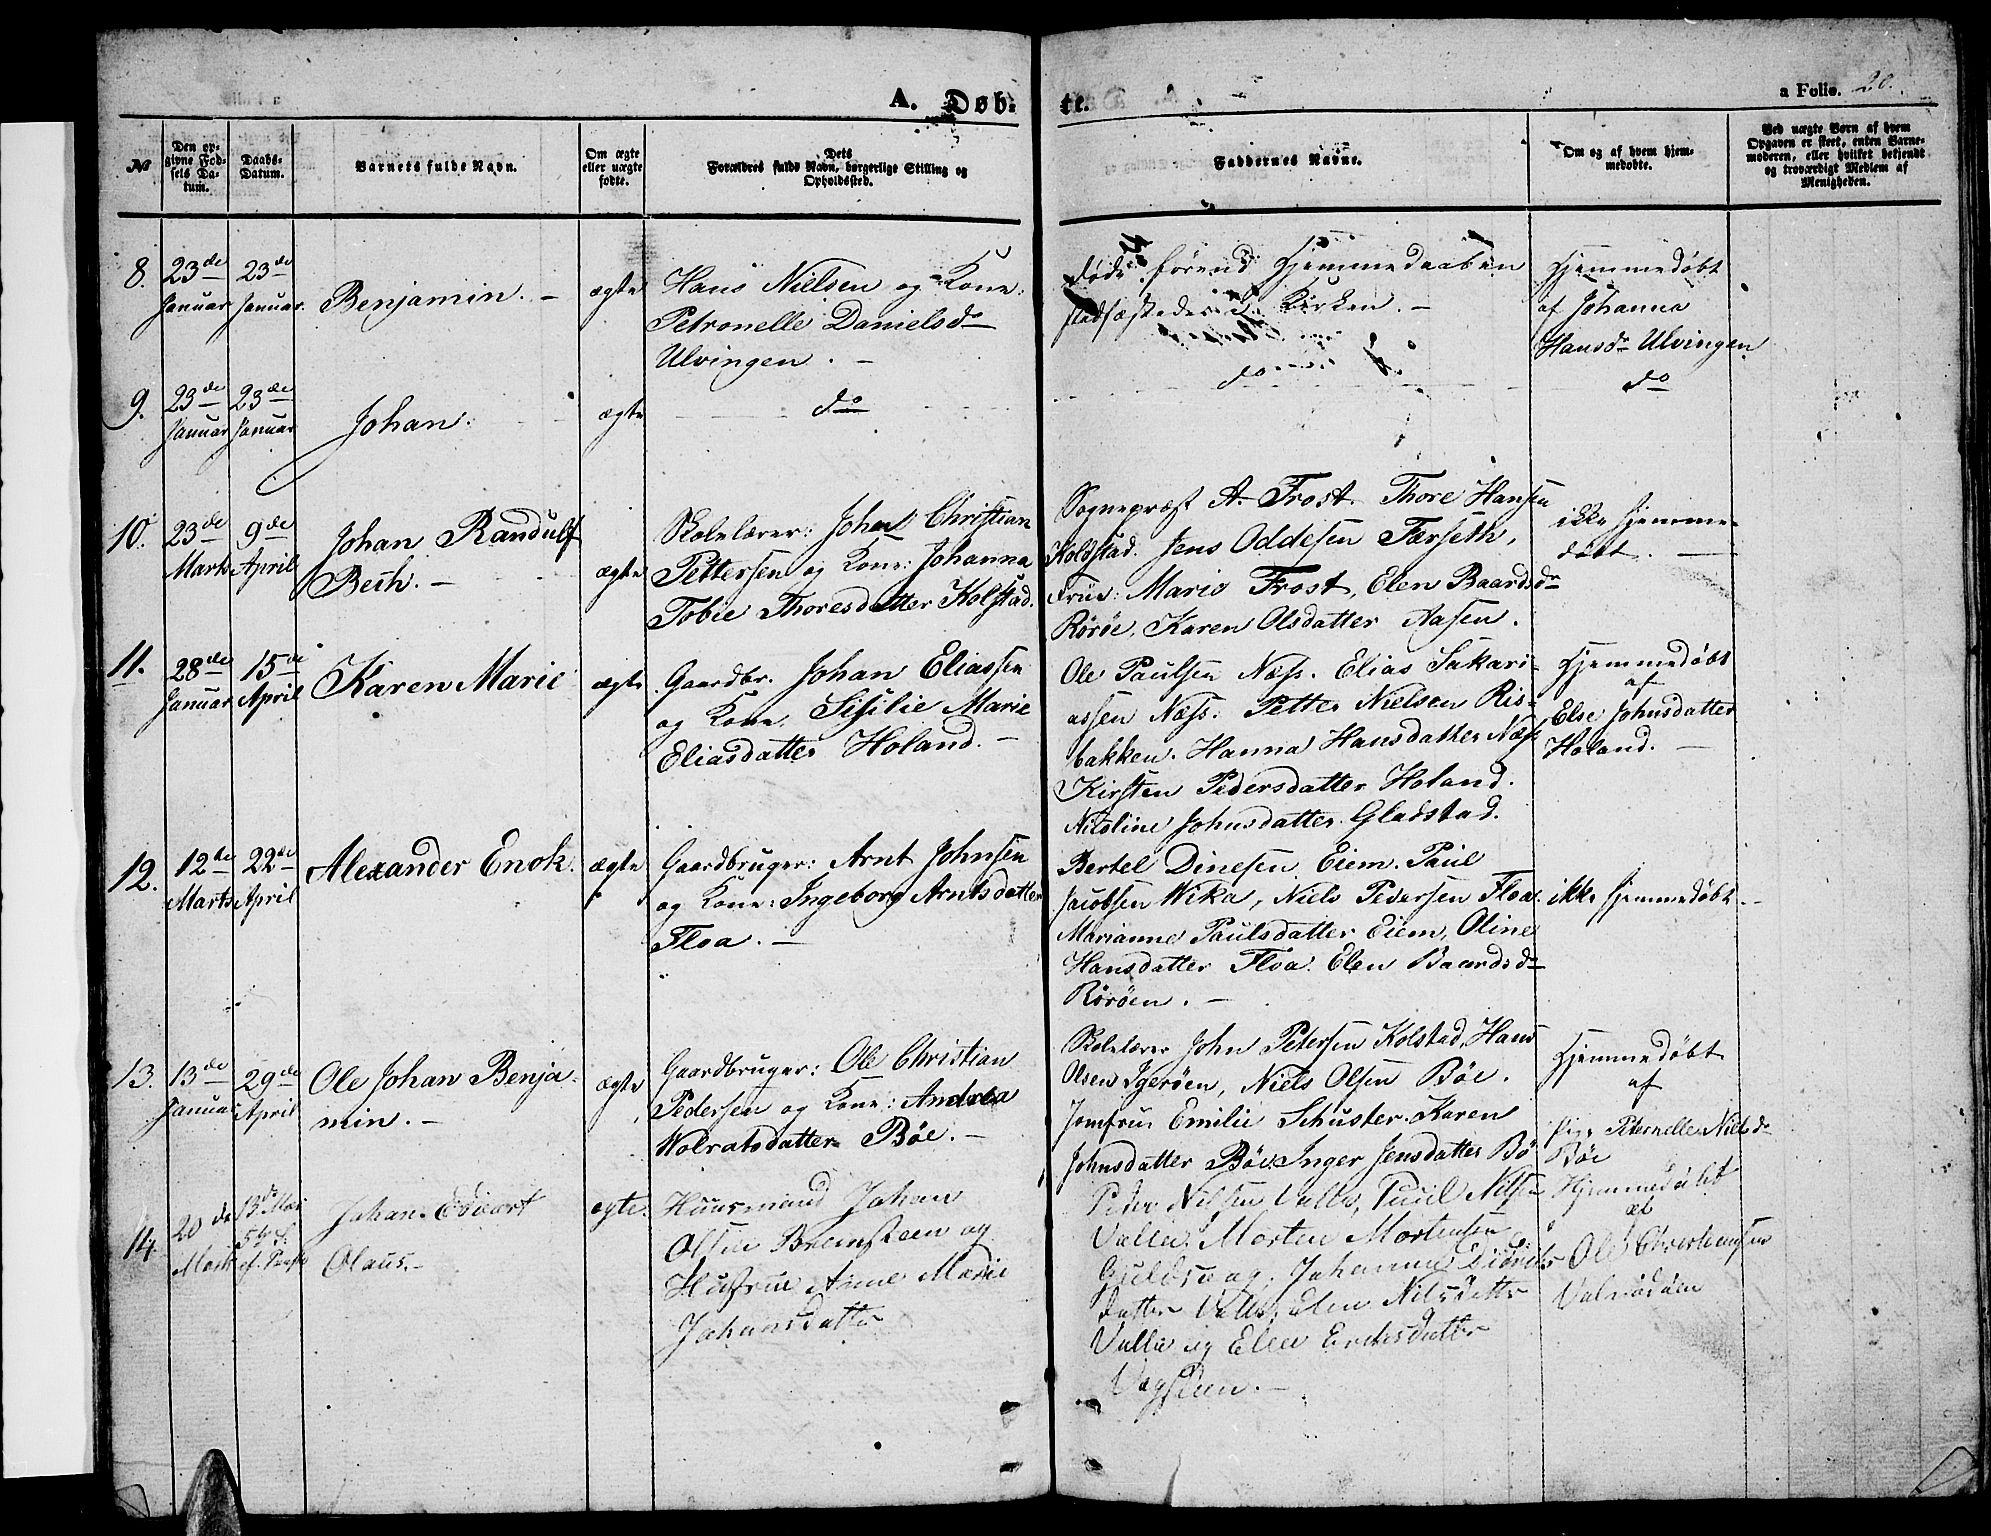 A. Døb-
te.
a Folio. 20.
No
Den op-
givne Fød-
sels Da-
tum.
Daabs-
Datum.
Barnets fulde Navn.
Om ægte
eller uægte
fødte.
Dets
Forældres fulde Navn, borgerlige Stilling og
Opholdssted.
Faddernes Navne.
Om og af hvem hjem-
medøbte.
Ved uægte Børn af hvem
Opgaven er skeet, enten Barne-
moderen, eller hvilket bekjendt
og troværdigt Medlem af
Menigheden.
8. 23de
Januar
23de
Januar.
Benjamin. -
ægte
Hans Nielsen og Kone:
Petronelle Danielsdr
Ulvingen. -
døde førend Hjemmedaaben
stadfæstedes i Kirken. -
Hjemmedøbt
af Johanna
Hansdr Ulvingen
9. 23de
Januar
23de
Januar
Johan.
ægte
do
do
do
10. 23de
Marts
9de
April
Johan Randulf
Beth. -
ægte
Skolelærer: John Christian
Pettersen og Kone: Johanna
Tobie Thoresdatter Kolstad.
Sognepræst A. Frost. Thore Hansen
Koldstad. Jens Oddesen Færseth,
Frue: Marie Frost, Elen Baardsdr
Rörøe, Karen Olsdatter Aasen.
ikke hjemme-
døbt. -
11. 28de
Januar
15de
April
Karen Marie
ægte
Gaardbr. Johan Eliassen
og Kone. Sisilie Marie
Eliasdatter Holand. -
Ole Paulsen Næss. Elias Sakari-
assen Næss. Petter Nielsen Ris-
bakken. Hanna Hansdatter Næss
Kirsten Pedersdatter Holand.
Nilsline Johnsdatter Gladstad.
Hjemmedøbt
af
Else Johnsdatter
Holand. -
12. 12te
Marts
22de
April
Alexander Enok.
ægte
Gaardbruger: Arnt Johnsen
og Kone: Ingeborg Arntsdatter
Floa. -
Bertel Dinesen Eiem. Paul
Jacobsen Wika, Niels Pedersen Floa.
Marianne Paulsdatter Eiem, Oline
Hansdatter Floa. Elen Baardsdr
Rörøen. -
ikke hjemmedøbt. -
13. 13de
Januar
29de
April
Ole Johan Benja-
min. -
ægte
Gaardbruger: Ole Christian
Pedersen og Kone: Andrea
Wolratsdatter Bøe. -
Skolelærer John Petersen Kolstad, Hans
Olsen Igerøen, Niels Olsen Bøe.
Jomfrue Emilie Schuster. Karen
Johnsdatter Bøe. Inger Jensdatter Bø
Hjemmedøbt
af
Pige Peternelle Nielsdr
Bøe
14. 20de
Marts
13de Mai
5te S.
ef. Paaske
Johan Edvart
Olaus. -
ægte.
Huusmand Johan
Olsen Bremsteen og
Hustrue Anne Marie
Johansdatter
Peder Nilsen Valle, Paul Nilsen
Valle. Morten Mortensen
Guldsvaag, Johanne Didriks
datter Valle, Elen Nilsdatter
Valle og Elen Eriksdatter
Hjemmedøbt
af
Ole Christensen